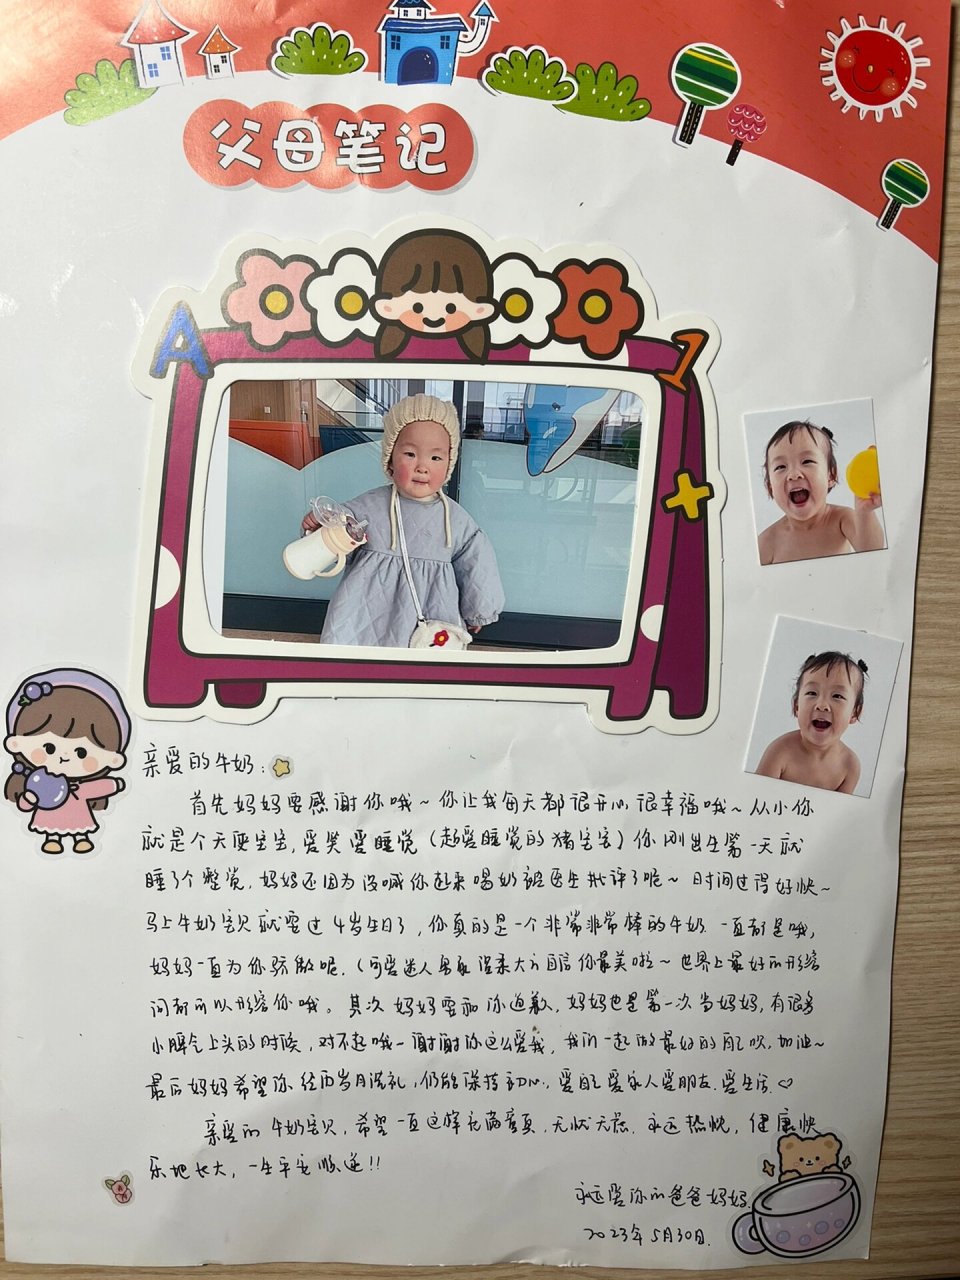 父母笔记
A
1
亲爱的牛奶：
首先妈妈要感谢你哦～你让我每天都很开心很幸福哦～从小你
就是个天使宝宝，爱笑爱睡觉（超爱睡觉的猪宝宝）你刚出生第一天就
睡了个整觉，妈妈还因为没喊你起来喝奶被医生批评了呢～时间过得好快～
马上牛奶宝贝就要过4岁生日了，你真的是一个非常非常棒的牛奶 一直都是哦，
妈妈一直为你骄傲呢．（可爱迷人勇敢温柔大方自信你最美啦～世界上最好的形容
词都可以形容你哦。其次妈妈要和你道歉，妈妈也是第一次当妈妈，有很多
小脾气上头的时候，对不起哦～谢谢你这么爱我，我们一起做最好的自己吹，加油～
最后妈妈希望你经历岁月洗礼，仍能保持初心，爱自己爱家人爱朋友．爱生活．♡
亲爱的牛奶宝贝，希望一直这样充满童真，无忧无虑．永远热忱，健康快
乐地长大，一生平安顺遂!!
永远爱你的爸爸妈妈．
2023年5月30日．